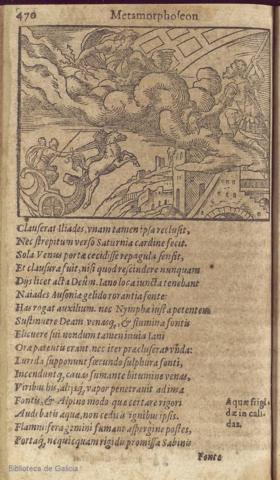 470
Metamorphoseon
Clauserat Iliades, vnam tamen ipsa reclusit,
Nec strepitum verso Saturnia cardine fecit.
Sola Venus portæ cecidisse repagula sensit,
Et clausura fuit, nisi quod rescindere nunquam
Dijs licet acta Deûm. Iano loca iuncta tenebant
Naiades Ausoniæ gelido rorantia fonte:
Has rogat auxilium. nec Nymphæ iusta petentem
Sustinuere Deam venasq́; & flumina fontis
Elicuere sui. nondum tamen inuia Iani
Ora patentis erant. nec iter præcluserat vnda:
Lurida supponunt fœcundo sulphura fonti,
Incenduntq́; cauas fumante bitumine venas,
Viribus his, alijsq́; vapor penetrauit ad ima
Fontis, & Alpino modo quæ certare rigori
Audebatis aquæ, non ceditis ignibus ipsis.
Flammifera gemini fumant aspergine postes,
Portaq́; nequicquam rigidis promissa Sabinis
Aquæ frigi-
dæ in cali-
das.
Fonte
Biblioteca de Galicia